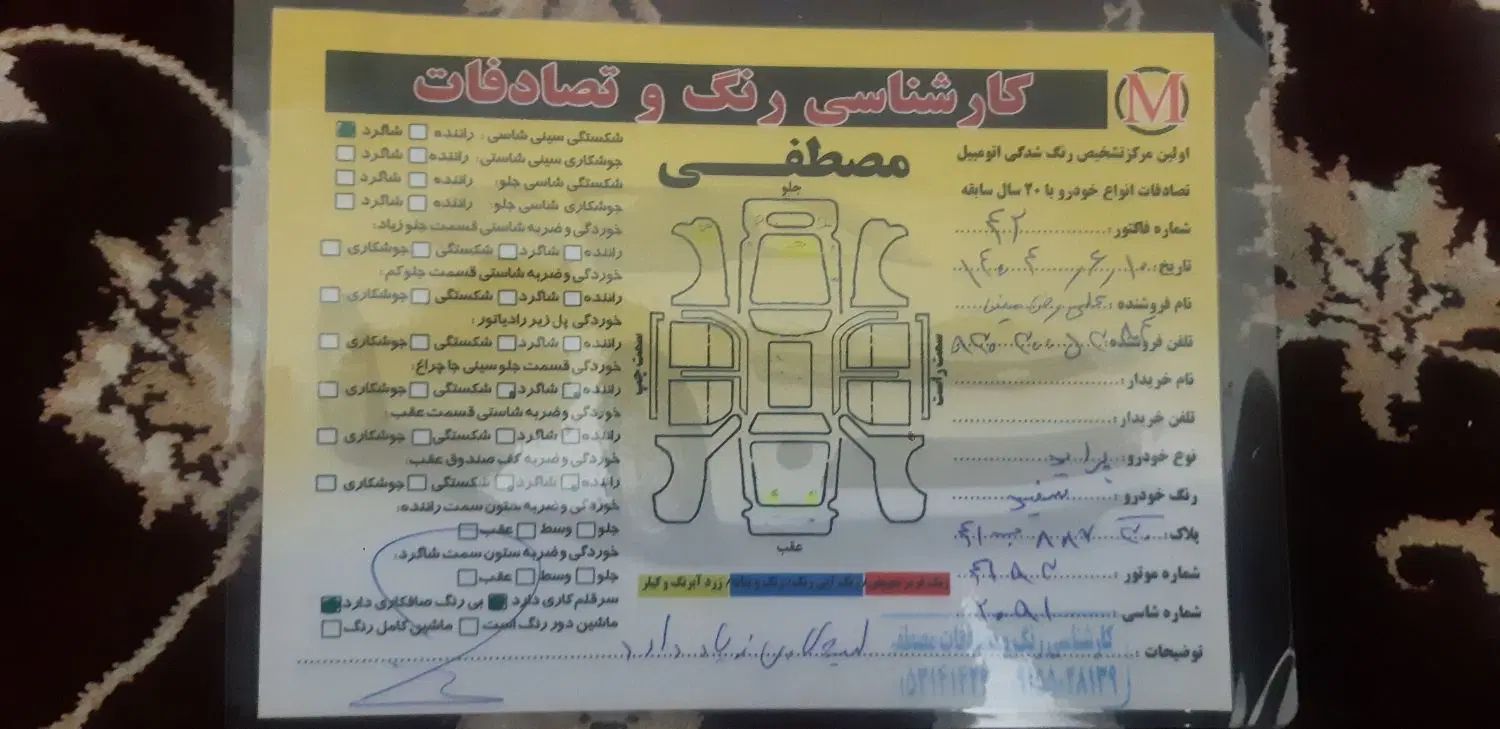 کارشناسی رنگ و تصادفات
M
مصطفی
اولین مرکز تشخیص رنگ شدگی اتومبیل
تصادفات انواع خودرو با ۲۰ سال سابقه
شماره فاکتور: ۴۲
تاریخ:
نام فروشنده:
تلفن فروشنده:
نام خریدار:
تلفن خریدار:
نوع خودرو: پراید
رنگ خودرو: سفید
پلاک:
شماره موتور:
شماره شاسی: ۲۰۹۱
توضیحات:
جلو
سمت چپ
سمت راست
عقب
رنگ قرمز تعویض/ رنگ آبی رنگ/ رنگ و بتانه/ زرد آبرنگ و گیلر
شکستگی سینی شاسی: راننده شاگرد
جوشکاری سینی شاسی: راننده شاگرد
شکستگی شاسی جلو: راننده شاگرد
جوشکاری شاسی جلو: راننده شاگرد
خوردگی و ضربه شاسی قسمت جلو زیاد:
راننده شاگرد شکستگی جوشکاری
خوردگی و ضربه شاستی قسمت جلو کم:
راننده شاگرد شکستگی جوشکاری
خوردگی پل زیر رادیاتور:
راننده شاگرد شکستگی جوشکاری
خوردگی قسمت جلو سینی جا چراغ:
راننده شاگرد شکستگی جوشکاری
خوردگی و ضربه شاستی قسمت عقب:
راننده شاگرد شکستگی جوشکاری
خوردگی و ضربه کف صندوق عقب:
راننده شاگرد شکستگی جوشکاری
خوردگی و ضربه ستون سمت راننده:
جلو وسط عقب
خوردگی و ضربه ستون سمت شاگرد:
جلو وسط عقب
سر قلم کاری دارد بی رنگ صافکاری دارد
ماشین دور رنگ است ماشین کامل رنگ
کارشناسی رنگ و تصادفات مصطفی